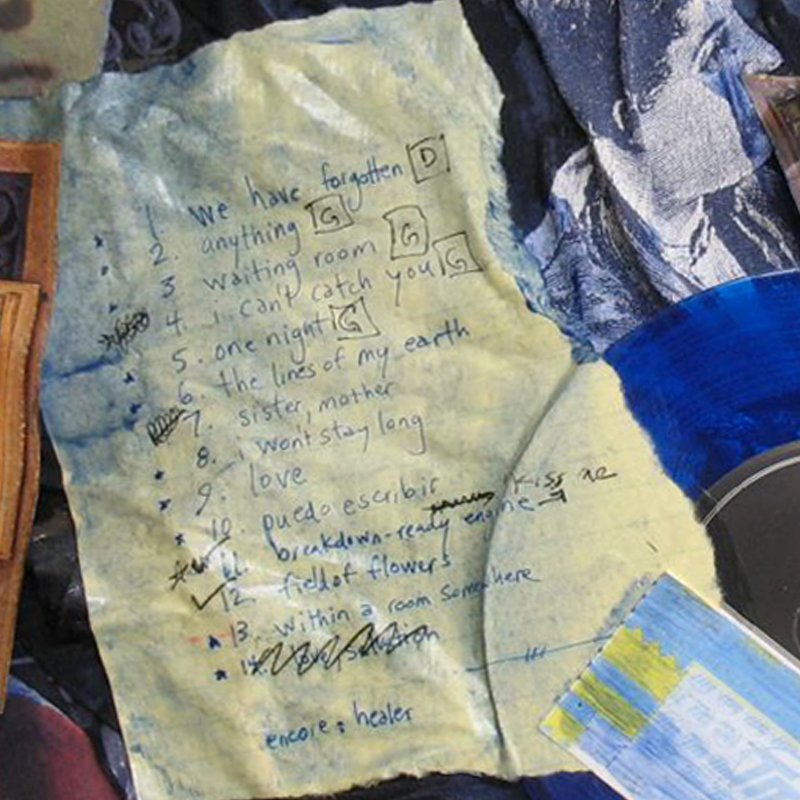 1. we have forgotten D
2. anything G
3 waiting room G
4. i can't catch you G
5. one night G
6. the lines of my earth
7. sister, mother
8. i won't stay long
9. love
10. puedo escribir
kiss me
11. breakdown-ready engine
12. field of flowers
13. within a room somewhere
14.
encore: healer